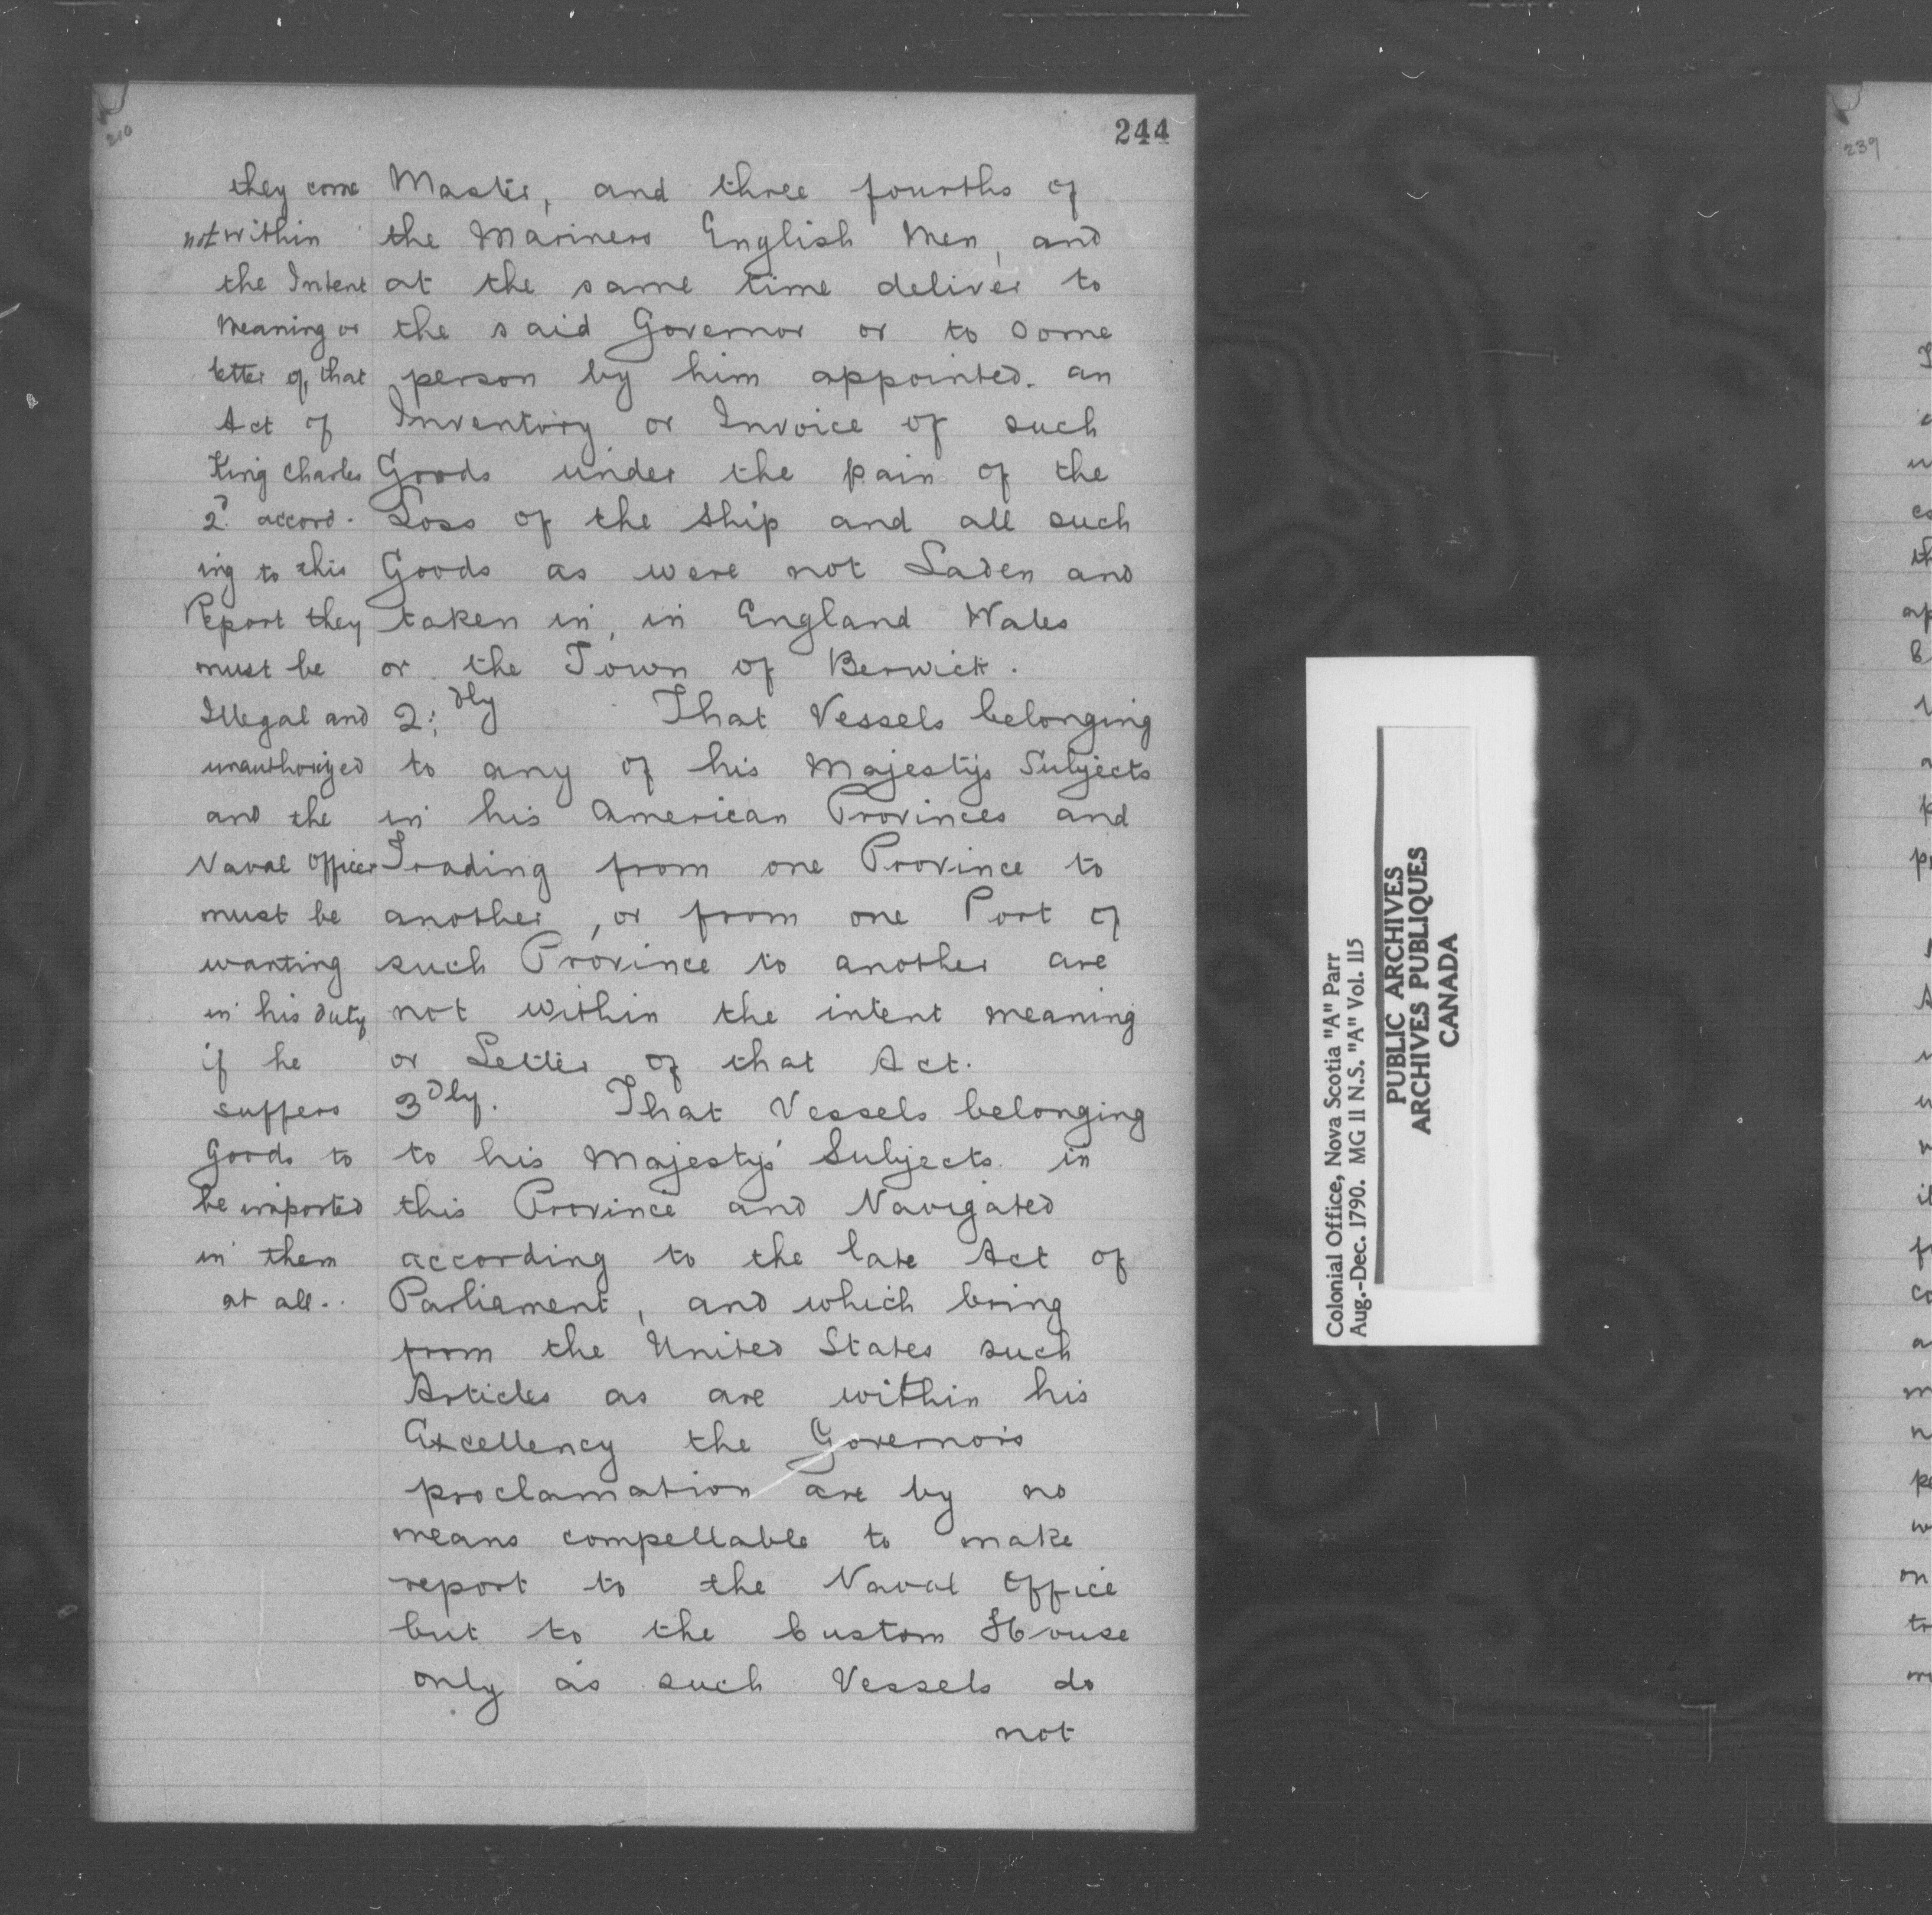 244
210
they come
not within
the Intent
Meaning or
letter of, that
Act of
King Charles
2d accord-
ing to this
Report they
must be
Illegal and
unauthorized
and the
Naval Officer
must be
wanting
in his duty
if he
suffers
Goods to
be imported
in them
at all..
Master, and three fourths of
the Mariners English Men, and
at the same time deliver to
the said Governor or to some
person by him appointed. an
Inventory or Invoice of such
Goods under the pain of the
Loss of the Ship and all such
Goods as were not Laden and
taken in, in England Wales
or the Town of Berwick.
2:dly That Vessels belonging
to any of his Majestys Subjects
in his American Provinces and
Trading from one Province to
another, or from one Port of
such Province to another are
not within the intent meaning
or Letter of that Act.
3dly. That Vessels belonging
to his Majestys' Subjects in
this Province and Navigated
according to the late Act of
Parliament, and which bring
from the United States such
Articles as are within his
Excellency the Governors
proclamation are by no
means compellable to make
report to the Naval Office
but to the Custom House
only as such Vessels do
not
Colonial Office, Nova Scotia "A" Parr
Aug.-Dec. 1790. MG 11 N.S. "A" Vol. 115
PUBLIC ARCHIVES
ARCHIVES PUBLIQUES
CANADA
239